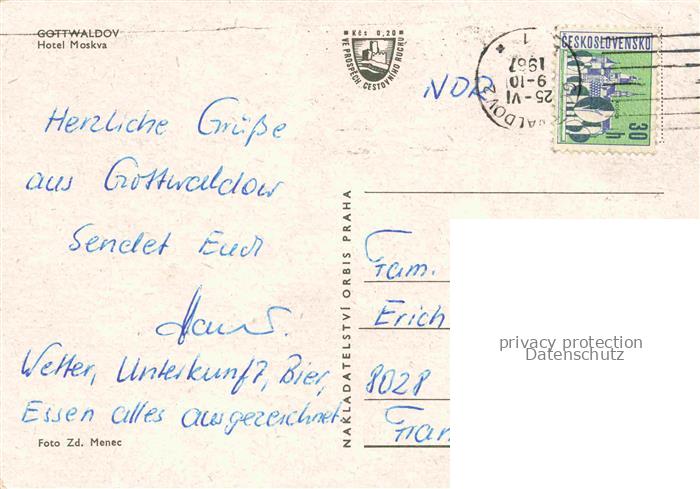 GOTTWALDOV
Hotel Moskva
Kčs 0,20
VE PROSPĚCH CESTOVNÍHO RUCHU
ČESKOSLOVENSKO
30 h
25-VI
9-10
1967
1
NDR
Herzliche Grüße
aus Gottwaldow
Sendet Euch
Wetter, Unterkunft, Bier,
Essen alles ausgezeichnet
Foto Zd. Menec
NAKLADATELSTVÍ ORBIS PRAHA
Fam.
Erich
8028
privacy protection
Datenschutz